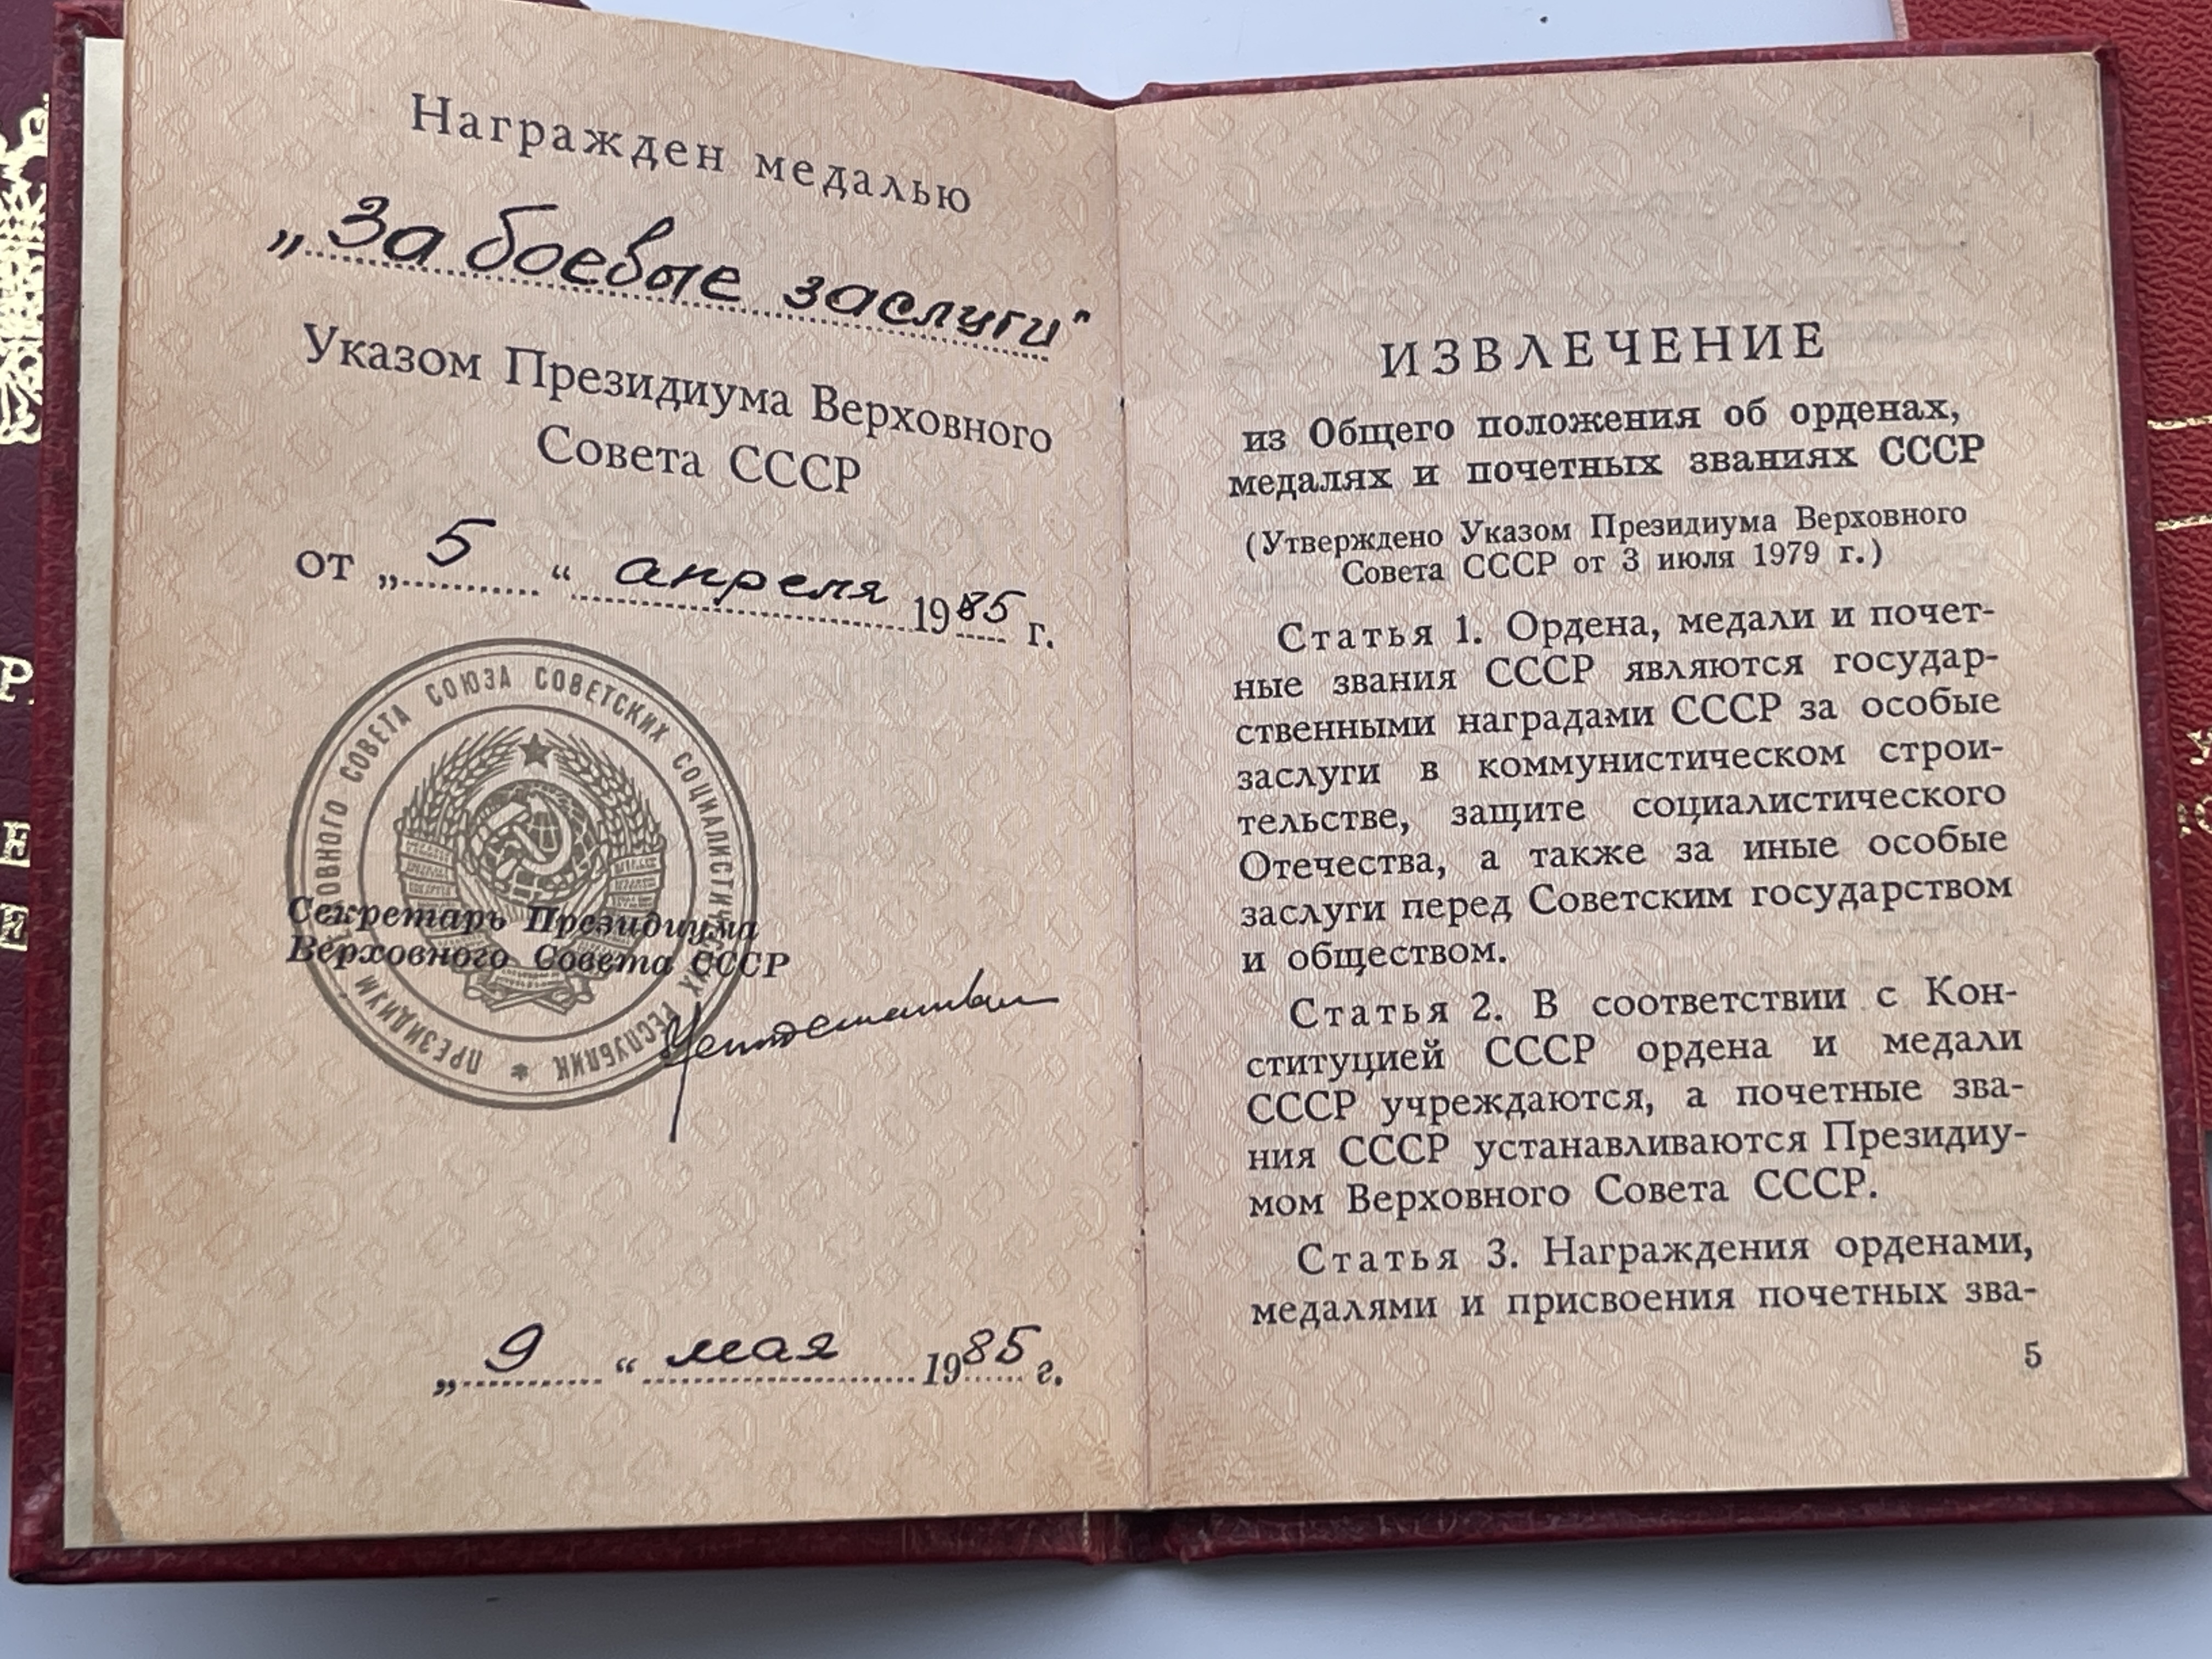 Награжден медалью
„За боевые заслуги"
Указом Президиума Верховного
Совета СССР
от „5“ апреля 1985 г.
ПРЕЗИДИУМ ВЕРХОВНОГО СОВЕТА СОЮЗА СОВЕТСКИХ СОЦИАЛИСТИЧЕСКИХ РЕСПУБЛИК
Секретарь Президиума
Верховного Совета СССР
„9“ мая 1985 г.
ИЗВЛЕЧЕНИЕ
из Общего положения об орденах,
медалях и почетных званиях СССР
(Утверждено Указом Президиума Верховного
Совета СССР от 3 июля 1979 г.)
Статья 1. Ордена, медали и почет-
ные звания СССР являются государ-
ственными наградами СССР за особые
заслуги в коммунистическом строи-
тельстве, защите социалистического
Отечества, а также за иные особые
заслуги перед Советским государством
и обществом.
Статья 2. В соответствии с Кон-
ституцией СССР ордена и медали
СССР учреждаются, а почетные зва-
ния СССР устанавливаются Президиу-
мом Верховного Совета СССР.
Статья 3. Награждения орденами,
медалями и присвоения почетных зва-
5